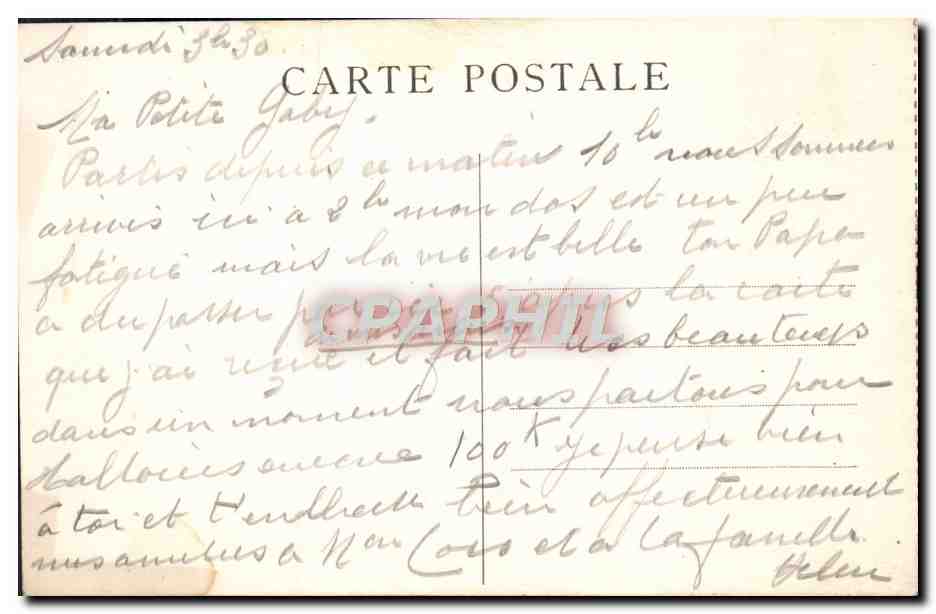 Samedi 3h30
CARTE POSTALE
Ma Petite Gaby.
Partis depuis ce matin 10h nous sommes
arrivés ici à 2h mon dos est un peu
fatigué mais la vie est belle ton Papa
a du passer par ici la carte
CPAPHIL
que j'ai reçue il fait très beau temps
dans un moment nous partons pour
encore 100K je pense bien
à toi et t'embrasse bien affectueusement
mes amitiés à et à la famille